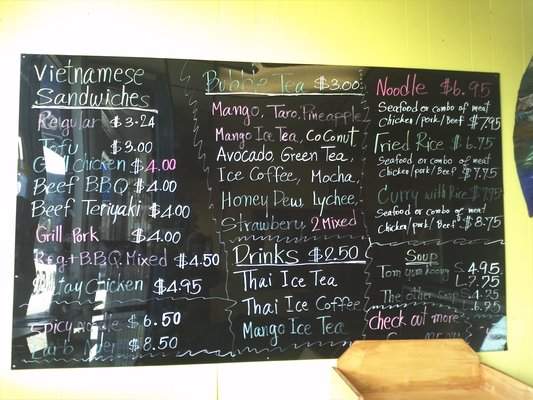 Vietnamese
Sandwiches
Regular $3.24
Tofu $3.00
Grill Chicken $4.00
Beef B.B.Q $4.00
Beef Teriyaki $4.00
Grill Pork $4.00
Reg+B.B.Q. Mixed $4.50
Chicken $4.95
Spicy Noodle $6.50
$8.50
Bubble Tea $3.00
Mango, Taro, Pineapple
Mango Ice Tea, Coconut
Avocado, Green Tea,
Ice Coffee, Mocha,
Honey Dew, Lychee,
Strawberry 2 Mixed
Drinks $2.50
Thai Ice Tea
Thai Ice Coffee
Mango Ice Tea
Noodle $6.95
Seafood or combo of meat
Chicken/pork/Beef $7.95
Fried Rice $6.75
Seafood or combo of meat
Chicken/pork/Beef $7.75
Curry with Rice $7.75
Seafood or Combo of meat
Chicken/pork/Beef $8.75
Soup
Tom S. 4.95
L. 7.25
The other Soup S. 4.25
L. 6.25
check out more